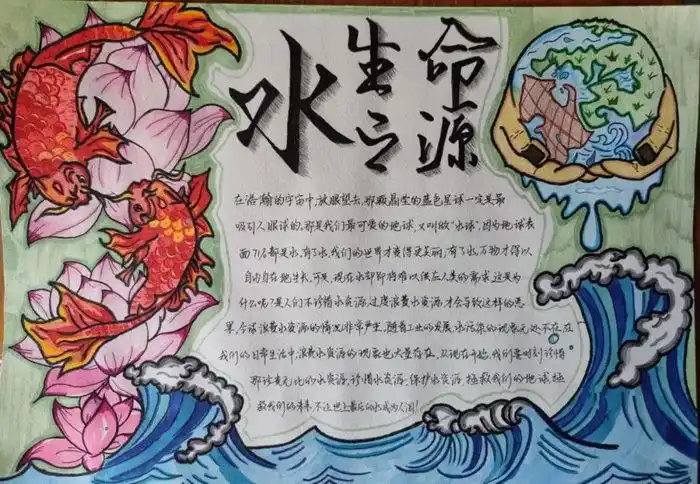 水 生命之源
在浩瀚的宇宙中,放眼望去,那颗晶莹的蓝色星球一定是最
吸引人眼球的,那是我们最可爱的地球,又叫做"水球",因为地球表
面71%都是水,有了水,我们的世界才变得更美丽,有了水,万物才得以
自由自在地生长,可是,现在水却即将难以供应人类的需求,这是为
什么呢?是人们不珍惜水资源,过度浪费水资源,才会导致这样的恶
果,全球浪费水资源的情况非常严重,随着工业的发展,水污染的现象无处不在,在
我们的日常生活中,浪费水资源的现象也大量存在,从现在开始,我们要时刻珍惜
那珍贵无比的水资源,珍惜水资源,保护水资源,拯救我们的地球,拯
救我们的未来,不让世上最后的水成为人泪!